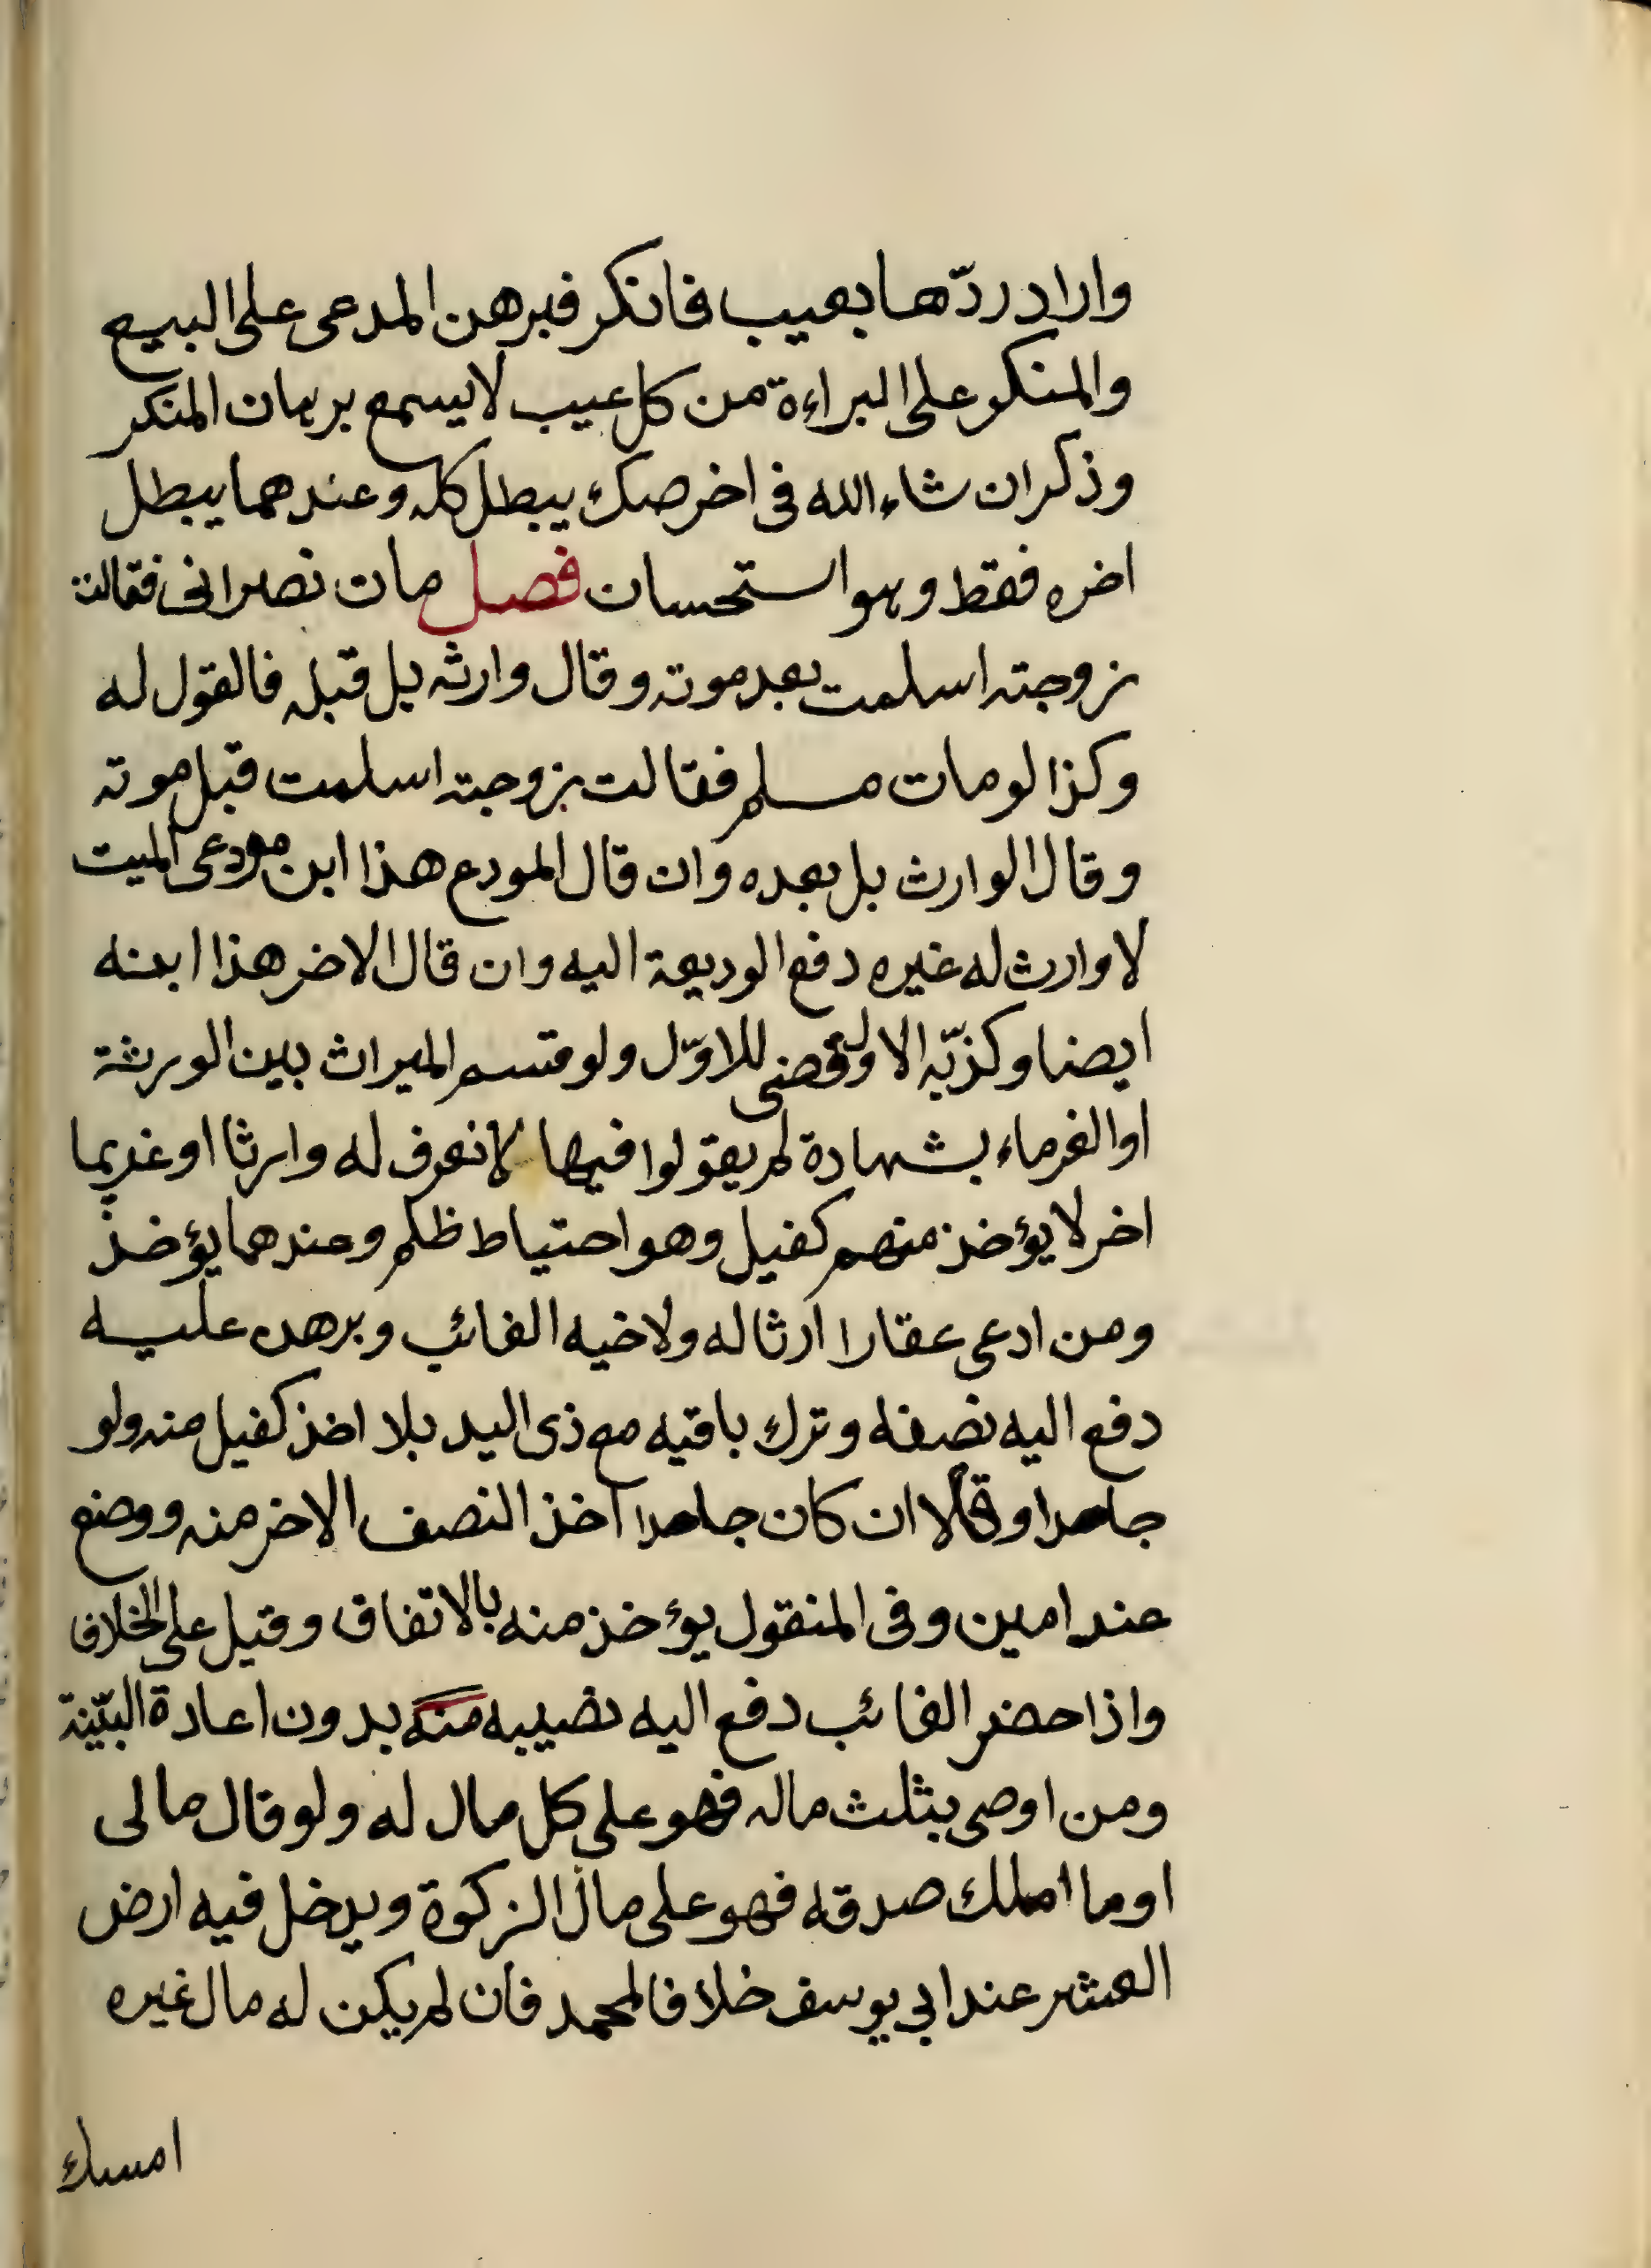 واراد ردّها بعيب فانكر فبرهن المدعى على البيع
والمنكر على البراءة من كل عيب لا يسمع برهان المنكر
وذكر ان شاء الله فى اخر صك يبطل كله وعندهما يبطل
اخره فقط وهو استحسان فصل مات نصرانى فقالت
زوجته اسلمت بعد موته وقال وارثه بل قبله فالقول له
وكذا لو مات مسلم فقالت زوجته اسلمت قبل موته
وقال الوارث بل بعده وان قال المودع هذا ابن مودعى الميت
لا وارث له غيره دفع الوديعة اليه وان قال لاخر هذا ابنه
ايضا وكذّبه الاول قضى للاوّل ولو قسم الميراث بين الورثة
او الغرماء بشهادة لم يقولوا فيها لا نعرف له وارثا او غريما
اخر لا يؤخذ منهم كفيل وهو احتياط ظلم وعندهما يؤخذ
ومن ادعى عقارا ارثا له ولاخيه الغائب وبرهن عليه
دفع اليه نصفه وترك باقيه مع ذى اليد بلا اخذ كفيل منه ولو
جاحدا وقالا ان كان جاحدا اخذ النصف الاخر منه ووضع
عند امين وفى المنقول يؤخذ منه بالاتفاق وقيل على الخلاف
واذا حضر الغائب دفع اليه نصيبه منه بدون اعادة البيّنة
ومن اوصى بثلث ماله فهو على كل مال له ولو قال مالى
او ما املك صدقه فهو على مال الزكوة ويدخل فيه ارض
العشر عند ابي يوسف خلافا لمحمد فان لم يكن له مال غيره
امسك